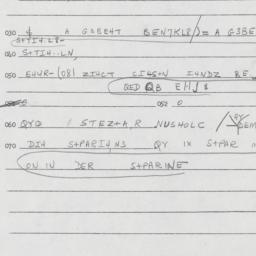 030 $ A G3BE4T BEN7KL8/)= A G3BE
S+TI4.L8-
040 S+TI4..LN,
050 EHUR-(08) ZI4CT CI4S+N I4NDZ BE
QED QB EH
052 0
060 QYQ STEZ+A,R NUSHOLC
070 DI4 S+PARI4,NS QY IX S+PAR
ON IN DER S+PARINE